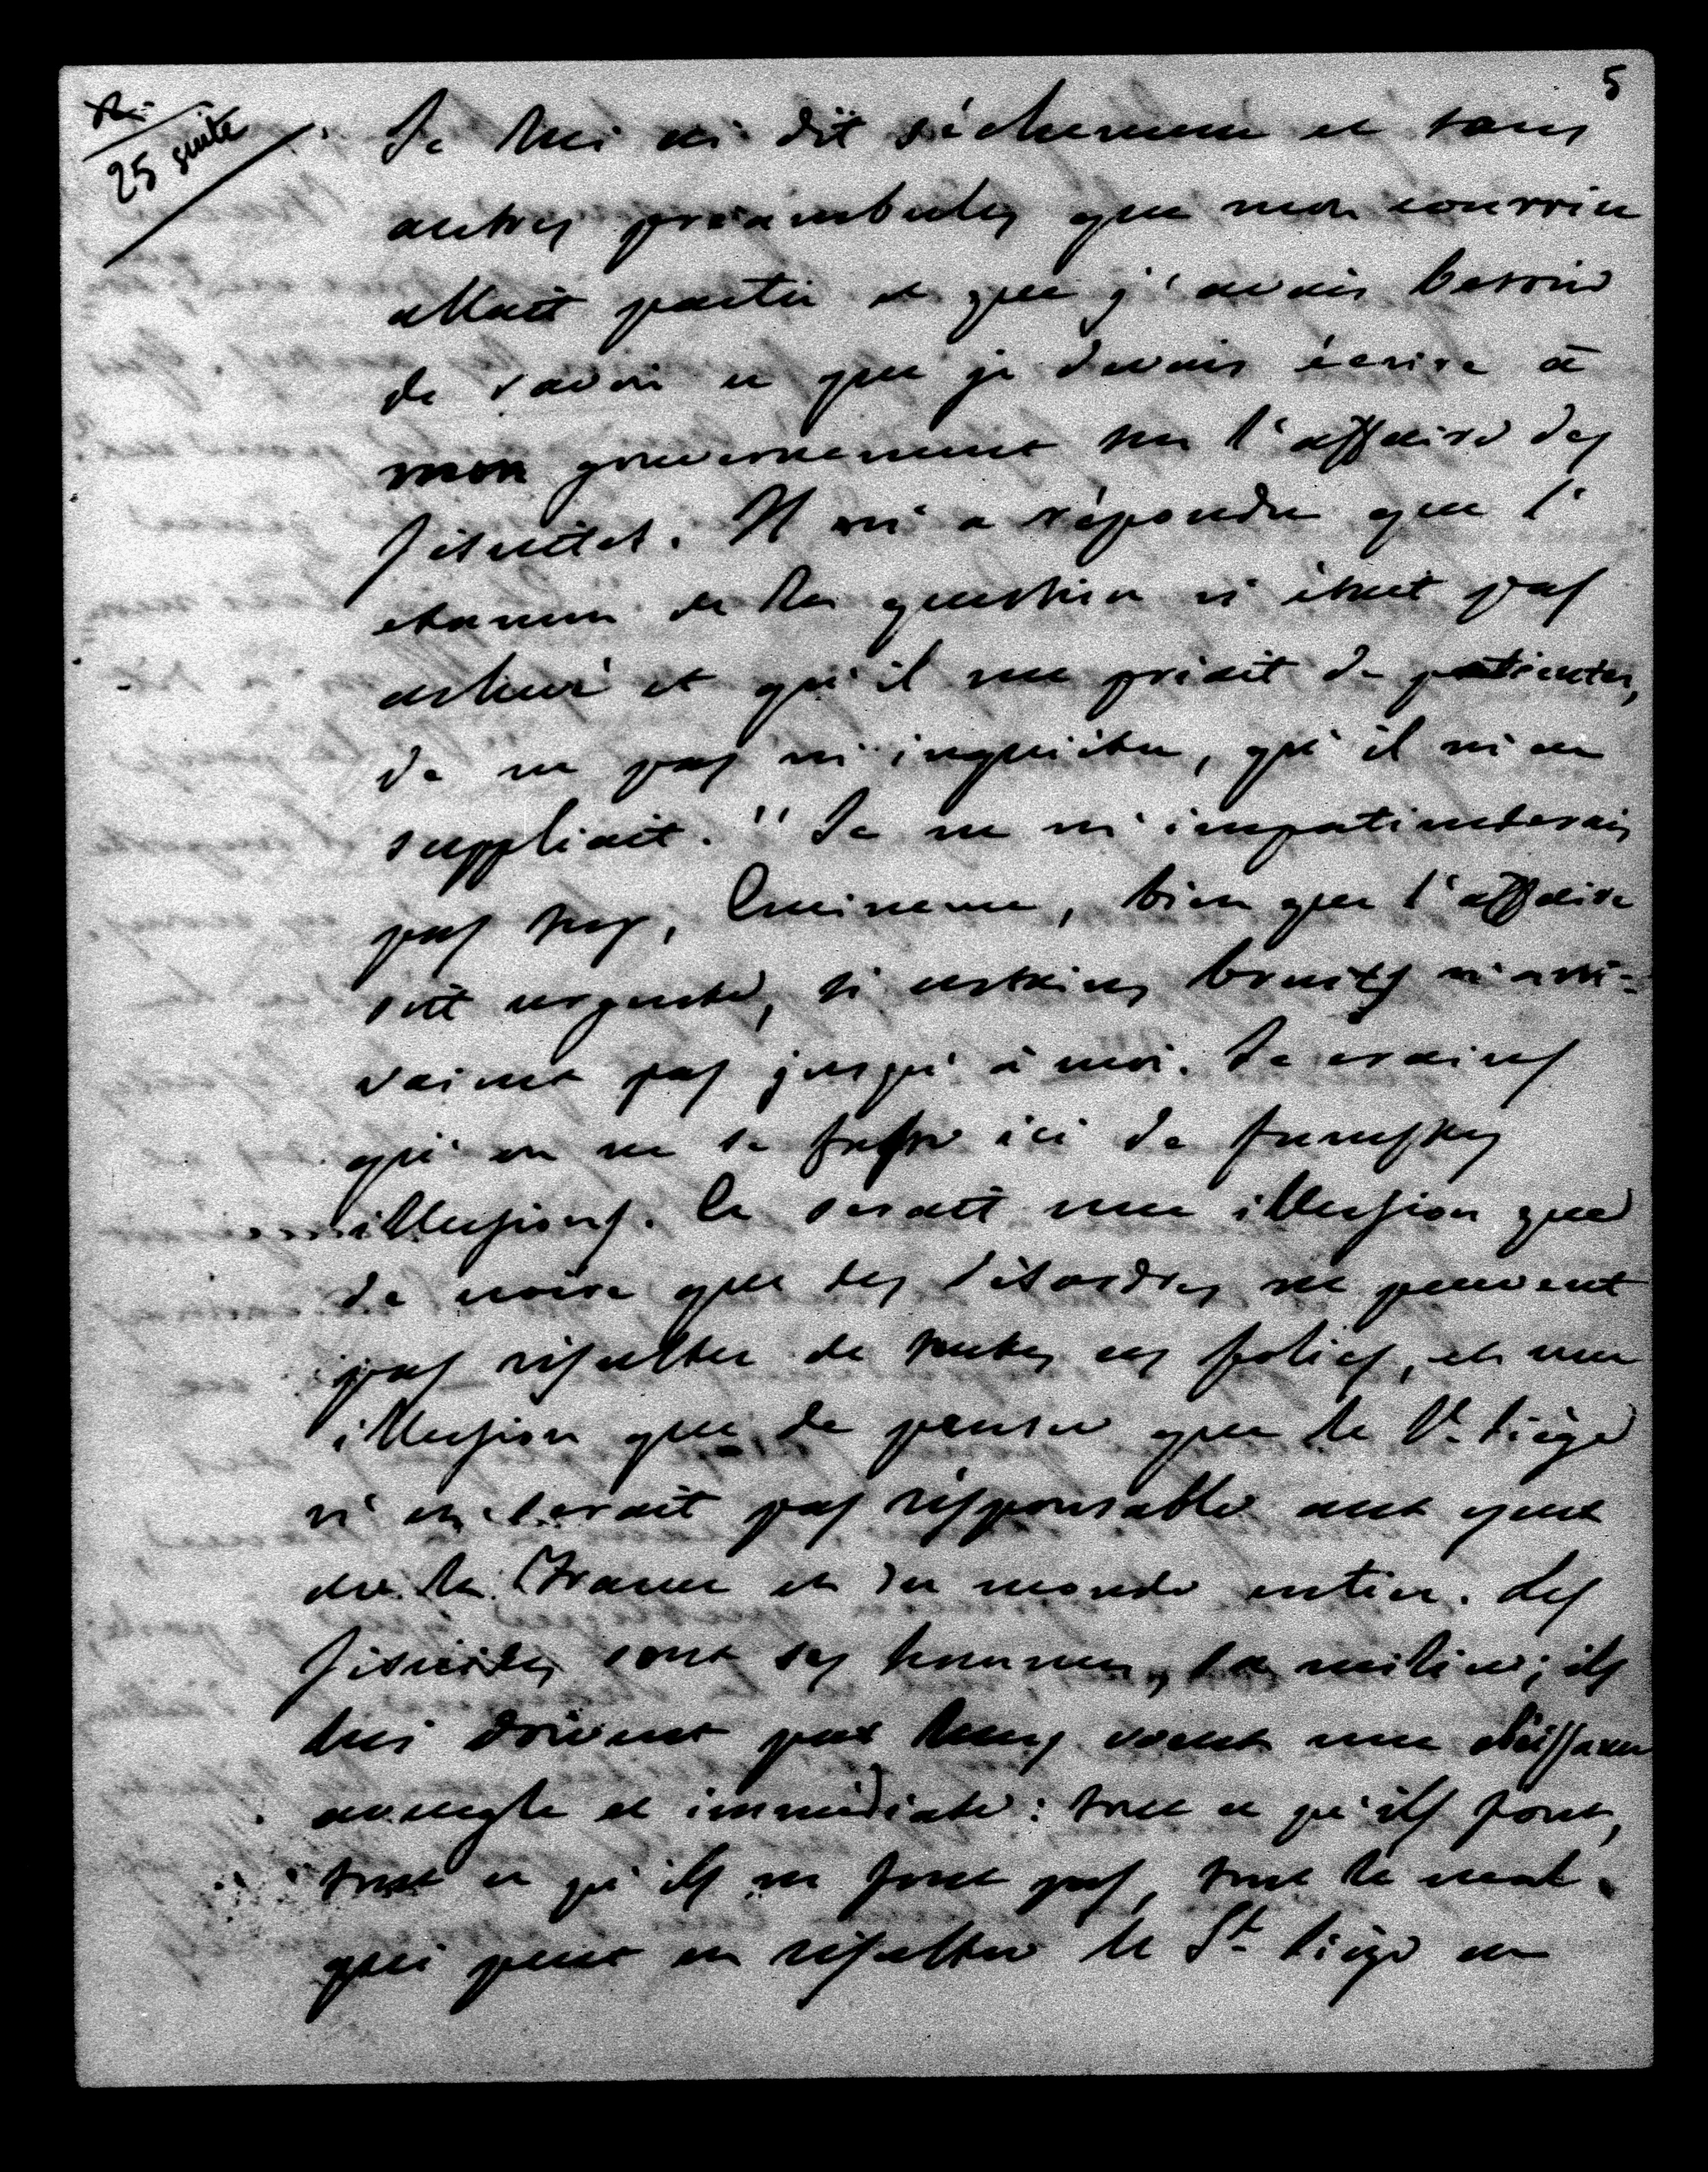 5
25 suite
Je lui ai dit sèchement et sans
autres préambules que mon courrier
allait partir et que j'avais besoin
de savoir ce que je devais écrire à
mon gouvernement sur l'affaire des
Jésuites. Il m'a répondu que l'
examen de la question n'était pas
achevé et qu'il me priait de patienter,
de ne pas m'inquiéter, qu'il m'en
suppliait. " Je ne m'impatienterais
pas trop, Eminence, bien que l'affaire
soit urgente, si certains bruits n'arri-
vaient pas jusqu'à moi. Je crains
qu'on ne se fasse ici de funestes
illusions. Ce serait une illusion que
de croire que des désordres ne peuvent
pas résulter de toutes ces folies, et une
illusion que de penser que le St. Siège
n'en serait pas responsable aux yeux
de la France et du monde entier. Les
Jésuites sont ses hommes, sa milice; ils
lui doivent par leurs voeux une obéissance
aveugle et immédiate: tout ce qu'ils font,
tout ce qu'ils ne font pas, tout le mal
qui peut en résulter le St. Siège en